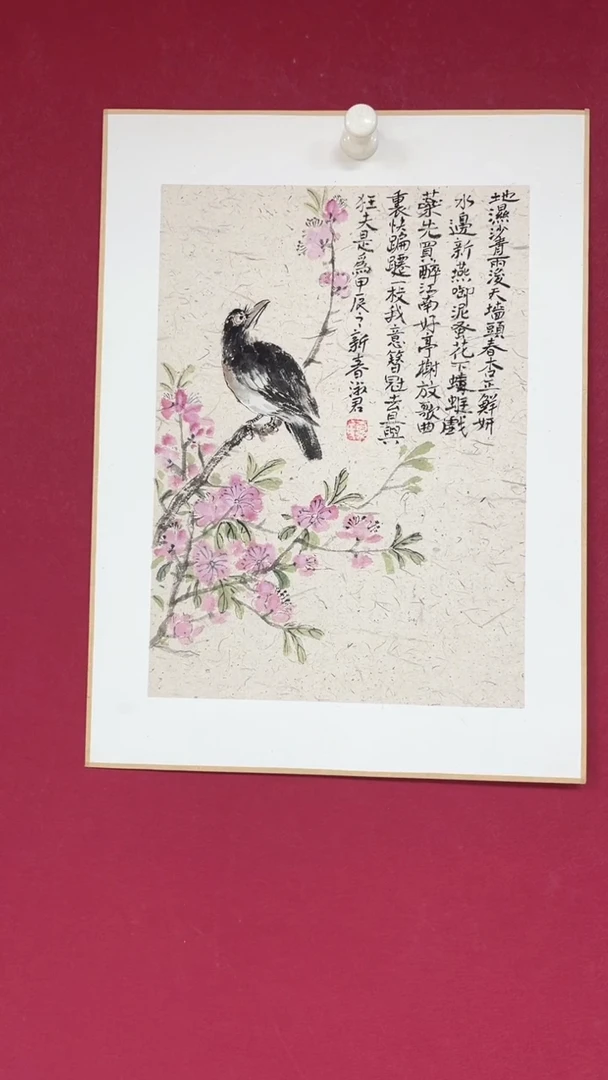 地濕沙青雨後天墻頭春杏正鮮妍
水邊新燕啣泥蚤花下蜻蜓戲
藥先買醉江南好亭榭放歌曲
裏快蹁躚一枝我意簪冠去見與
狂夫是為甲辰之新春淑君